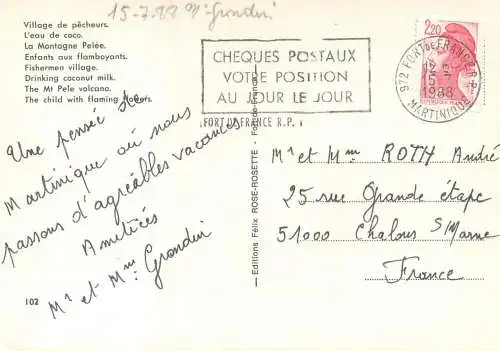 15-7.88 Mr Grondin
Village de pêcheurs.
L'eau de coco.
La Montagne Pelée.
Enfants aux flamboyants.
Fishermen village.
Drinking coconut milk.
The Mt Pele volcano.
The child with flaming flowers.
CHEQUES POSTAUX
VOTRE POSITION
AU JOUR LE JOUR
FORT DE FRANCE R.P.
972 FORT DE FRANCE R.P.
15-7
1988
MARTINIQUE
2,20
Une pensée de
Martinique où nous
passons d'agréables vacances
Amitiés
Mr et Mme Grondin
102
— Editions Félix ROSE-ROSETTE - Fort-de-France —
Mr et Mme ROTH André
25 rue Grande étape
51000 Chalons S/Marne
France